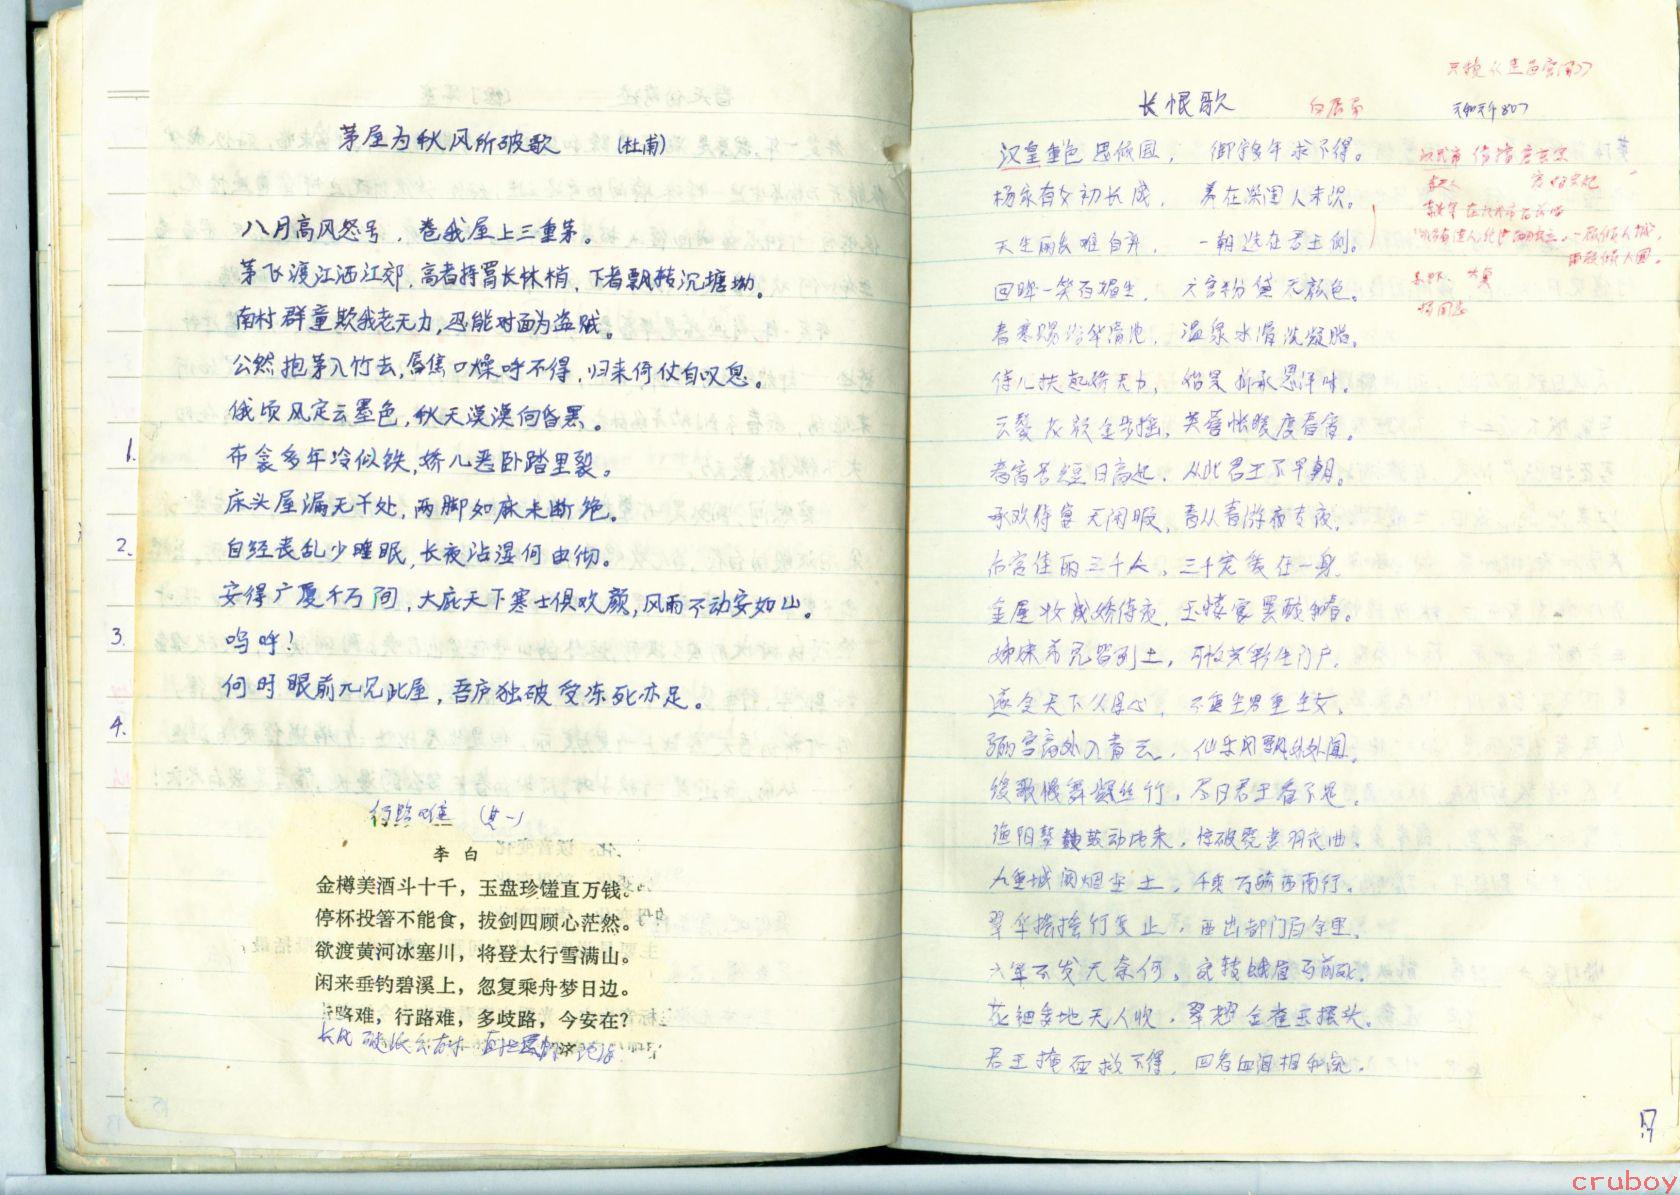 茅屋为秋风所破歌 (杜甫)
八月高风怒号，卷我屋上三重茅。
茅飞渡江洒江郊，高者挂罥长林梢，下者飘转沉塘坳。
南村群童欺我老无力，忍能对面为盗贼。
公然抱茅入竹去，唇焦口燥呼不得，归来倚仗自叹息。
俄顷风定云墨色，秋天漠漠向昏黑。
1. 布衾多年冷似铁，娇儿恶卧踏里裂。
床头屋漏无干处，两脚如麻未断绝。
2. 自经丧乱少睡眠，长夜沾湿何由彻。
安得广厦千万间，大庇天下寒士俱欢颜，风雨不动安如山。
3. 呜呼！
何时眼前兀见此屋，吾庐独破受冻死亦足。
4.
行路难 (其一)
李 白
金樽美酒斗十千，玉盘珍馐直万钱。
停杯投箸不能食，拔剑四顾心茫然。
欲渡黄河冰塞川，将登太行雪满山。
闲来垂钓碧溪上，忽复乘舟梦日边。
行路难，行路难，多歧路，今安在？
长恨歌 白居易
汉皇重色思倾国，御宇多年求不得。
杨家有女初长成，养在深闺人未识。
天生丽质难自弃，一朝选在君王侧。
回眸一笑百媚生，六宫粉黛无颜色。
春寒赐浴华清池，温泉水滑洗凝脂。
侍儿扶起娇无力，始是新承恩泽时。
云鬓花颜金步摇，芙蓉帐暖度春宵。
春宵苦短日高起，从此君王不早朝。
承欢侍宴无闲暇，春从春游夜专夜。
后宫佳丽三千人，三千宠爱在一身。
金屋妆成娇侍夜，玉楼宴罢醉和春。
姊妹弟兄皆列土，可怜光彩生门户。
遂令天下父母心，不重生男重生女。
骊宫高处入青云，仙乐风飘处处闻。
缓歌慢舞凝丝竹，尽日君王看不足。
渔阳鼙鼓动地来，惊破霓裳羽衣曲。
九重城阙烟尘土，千乘万骑西南行。
翠华摇摇行复止，西出都门百余里。
六军不发无奈何，宛转蛾眉马前死。
花钿委地无人收，翠翘金雀玉搔头。
君王掩面救不得，回看血泪相和流。
17
cruboy